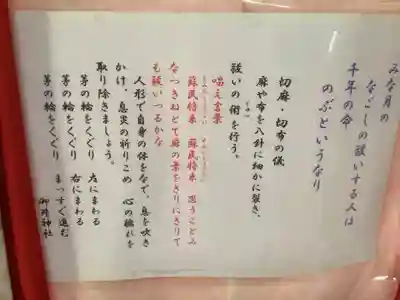 みな月の
なごしの祓いする人は
千年の命
のぶというなり
切麻・切布の儀
麻や布を八針に細かに裂き、
祓いの術を行う。
唱え言葉
蘇民将来 蘇民将来 思うことみ
なつきねとて麻の葉をきりにきりて
も祓いつるかな
人形で自身の体をなで、息を吹き
かけ、息災の祈りこめ 心の穢れを
取り除きましょう。
茅の輪をくぐり 左にまわる
茅の輪をくぐり 右にまわる
茅の輪をくぐり まっすぐ進む
御井神社